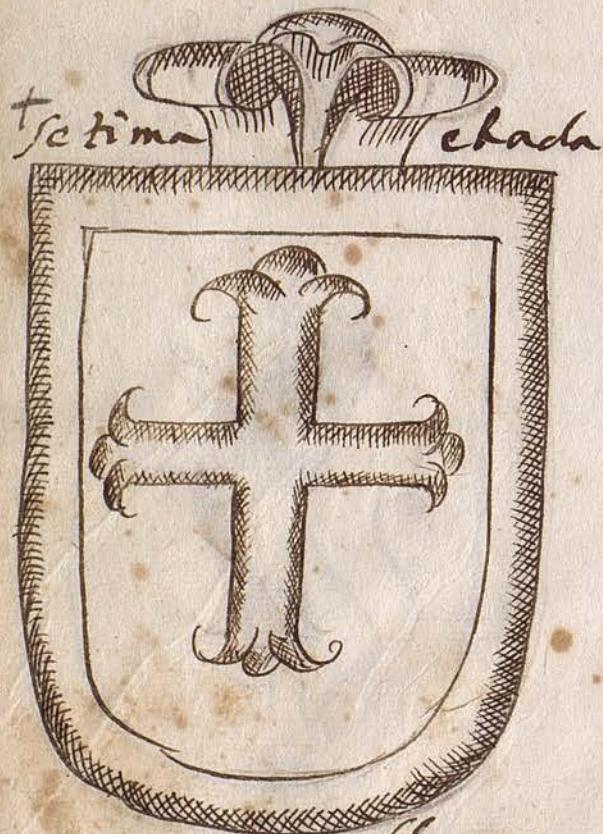 + setima ehada